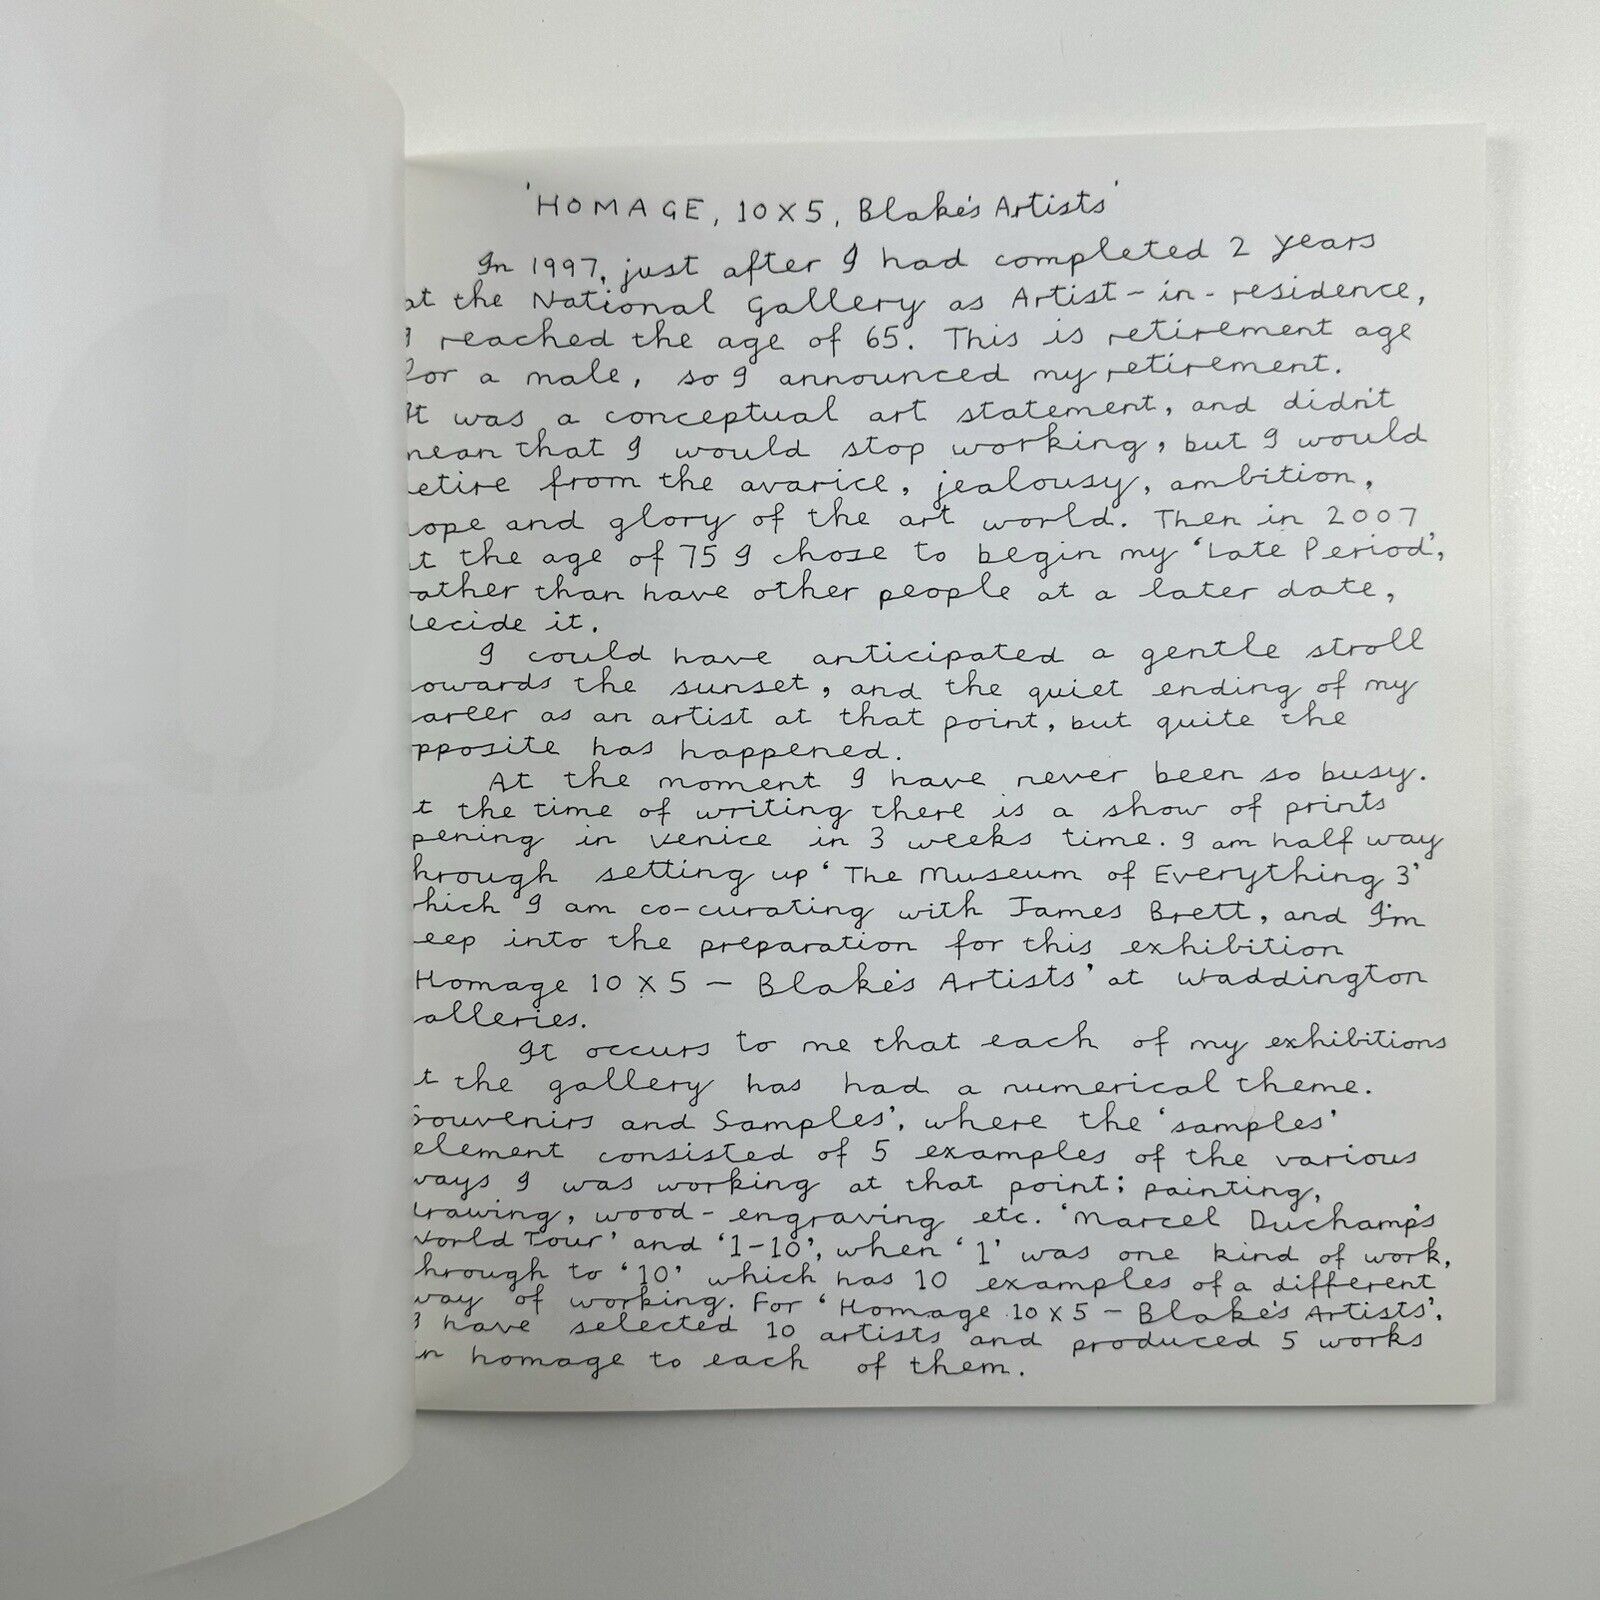 'HOMAGE, 10X5, Blake's Artists'
In 1997, just after I had completed 2 years
at the National Gallery as Artist-in-residence,
I reached the age of 65. This is retirement age
for a male, so I announced my retirement.
It was a conceptual art statement, and didn't
mean that I would stop working, but I would
etire from the avarice, jealousy, ambition,
ope and glory of the art world. Then in 2007
t the age of 75 I chose to begin my 'Late Period',
ather than have other people at a later date,
ecide it.
I could have anticipated a gentle stroll
owards the sunset, and the quiet ending of my
areer as an artist at that point, but quite the
pposite has happened.
At the moment I have never been so busy.
t the time of writing there is a show of prints
pening in Venice in 3 weeks time. I am half way
hrough setting up 'The Museum of Everything 3'
hich I am co-curating with James Brett, and I'm
eep into the preparation for this exhibition
Homage 10 X 5 - Blake's Artists' at Waddington
alleries.
It occurs to me that each of my exhibitions
t the gallery has had a numerical theme.
Souvenirs and Samples', where the 'samples'
element consisted of 5 examples of the various
ways I was working at that point; painting,
drawing, wood-engraving etc. 'Marcel Duchamp's
World Tour' and '1-10', when '1' was one kind of work,
hrough to '10' which has 10 examples of a different
way of working. For 'Homage 10 X 5 - Blake's Artists',
I have selected 10 artists and produced 5 works
in homage to each of them.